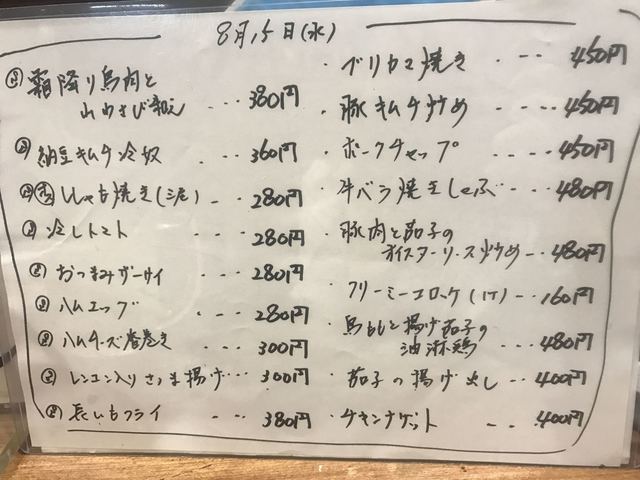 8月15日(水)
霜降り鳥肉と
山わさび和え ... 380円
納豆キムチ冷奴 ... 360円
ししゃも焼き(三尾) 280円
冷しトマト ... 280円
おつまみザーサイ ... 280円
ハムエッグ ... 280円
ハムチーズ春巻き ... 300円
レンコン入りさつま揚げ... 300円
長いもフライ ... 380円
・ブリカマ焼き ... 450円
・豚キムチ炒め ... 450円
・ポークチャップ ... 450円
・牛バラ焼きしゃぶ ... 480円
・豚肉と茄子の
オイスターソース炒め... 480円
・クリーミーコロッケ(1ケ) .. 160円
・鳥ももと揚げ茄子の
油淋鶏 ... 480円
・茄子の揚げ出し ... 400円
・チキンナゲット ... 400円